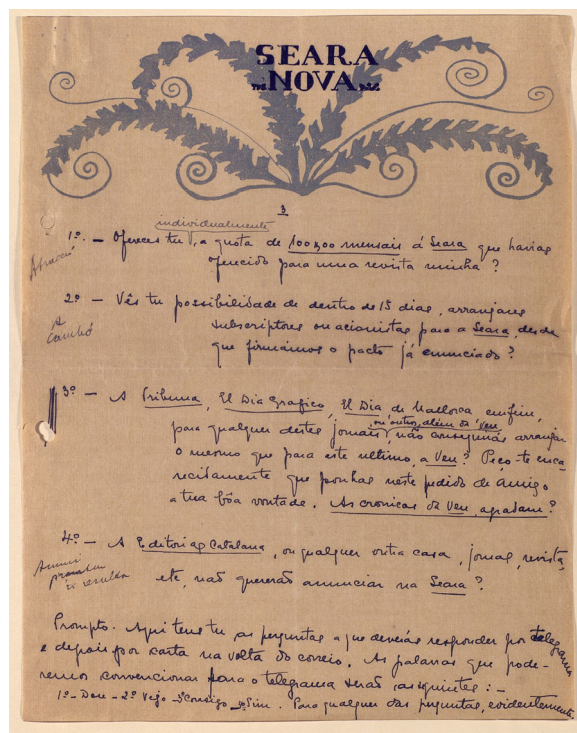 SEARA
NOVA
3
individualmente
1º. — Ofereces tu, a quota de 100$00 mensais á Seara que havias
oferecido para uma revista minha?
2º — Vês tu possibilidade de dentro de 15 dias, arranjares
A
Cambó
subscriptores ou acionistas para a Seara, desde
que firmámos o pacto já enunciado?
3º — A Tribuna, El Dia Grafico, El Dia de Mallorca emfim,
ou outro, além da Veu,
para qualquer destes jornais, não conseguirás arranjar
o mesmo que para este ultimo, a Veu? Peço-te enca-
recidamente que ponhas neste pedido de amigo
a tua bôa vontade. As cronicas da Veu, agradam?
4º — A Editorial Catalana, ou qualquer outra casa, jornal, revista,
etc, não quererão anunciar na Seara?
Prompto. Aqui tens tu as perguntas a que deverás responder por telegrama
e depois por carta na volta do correio. As palavras que pode-
remos convencionar para o telegrama serão as siguintes: —
1º - Dou - 2º Vejo - 3º Consigo - 4º Sim. Para qualquer das perguntas, evidentemente.